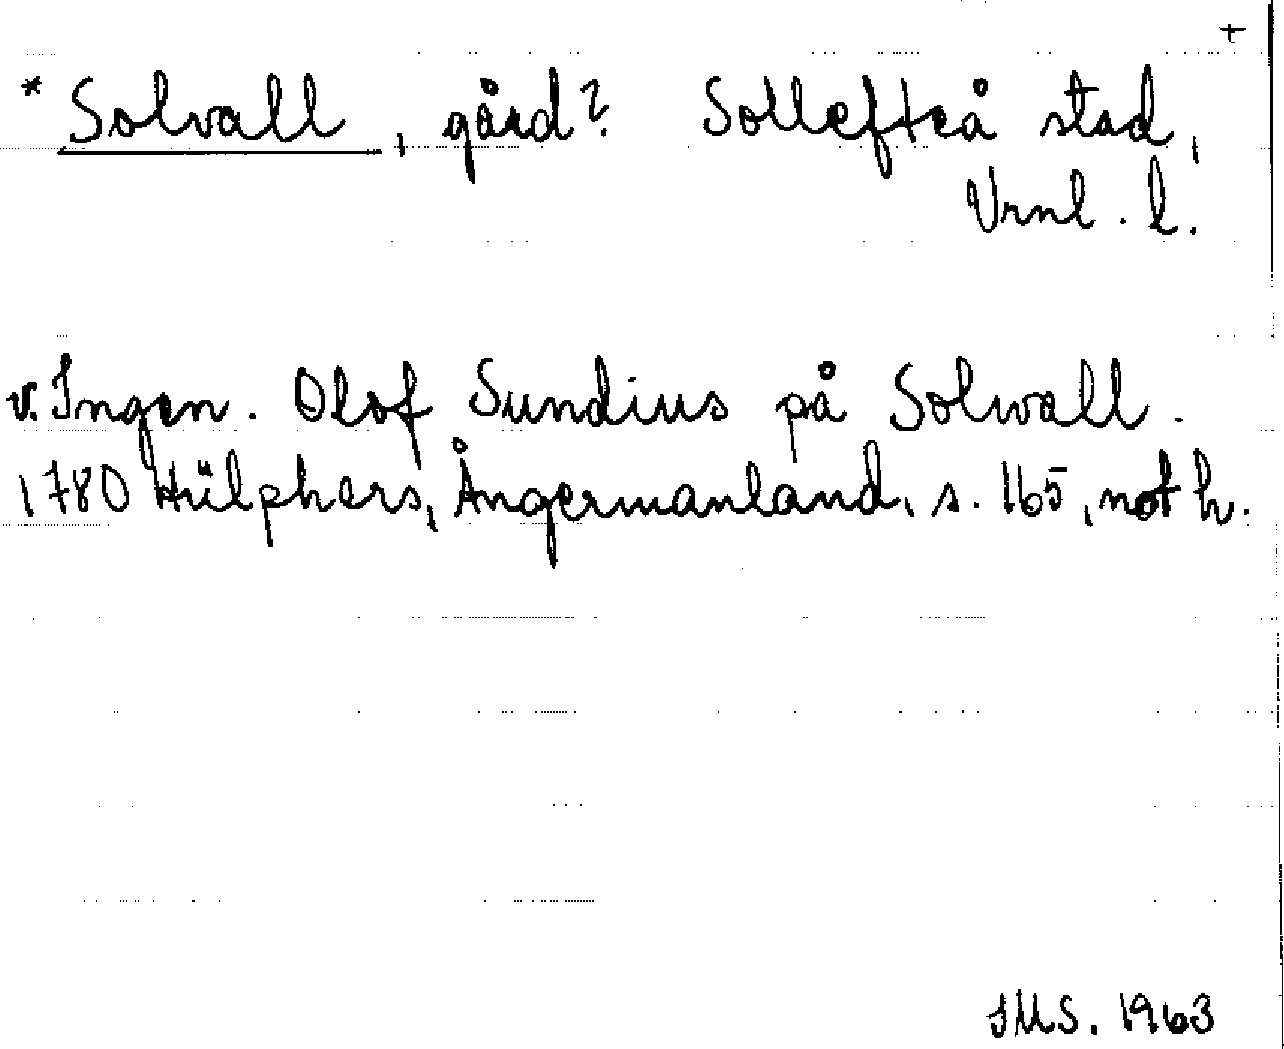 +
* Solvall, gård? Sollefteå stad,
Vrnl. l.
v. Ingen. Olof Sundius på Solwall.
1780 Hülphers, Ångermanland, s. 165, not h.
JMS. 1963